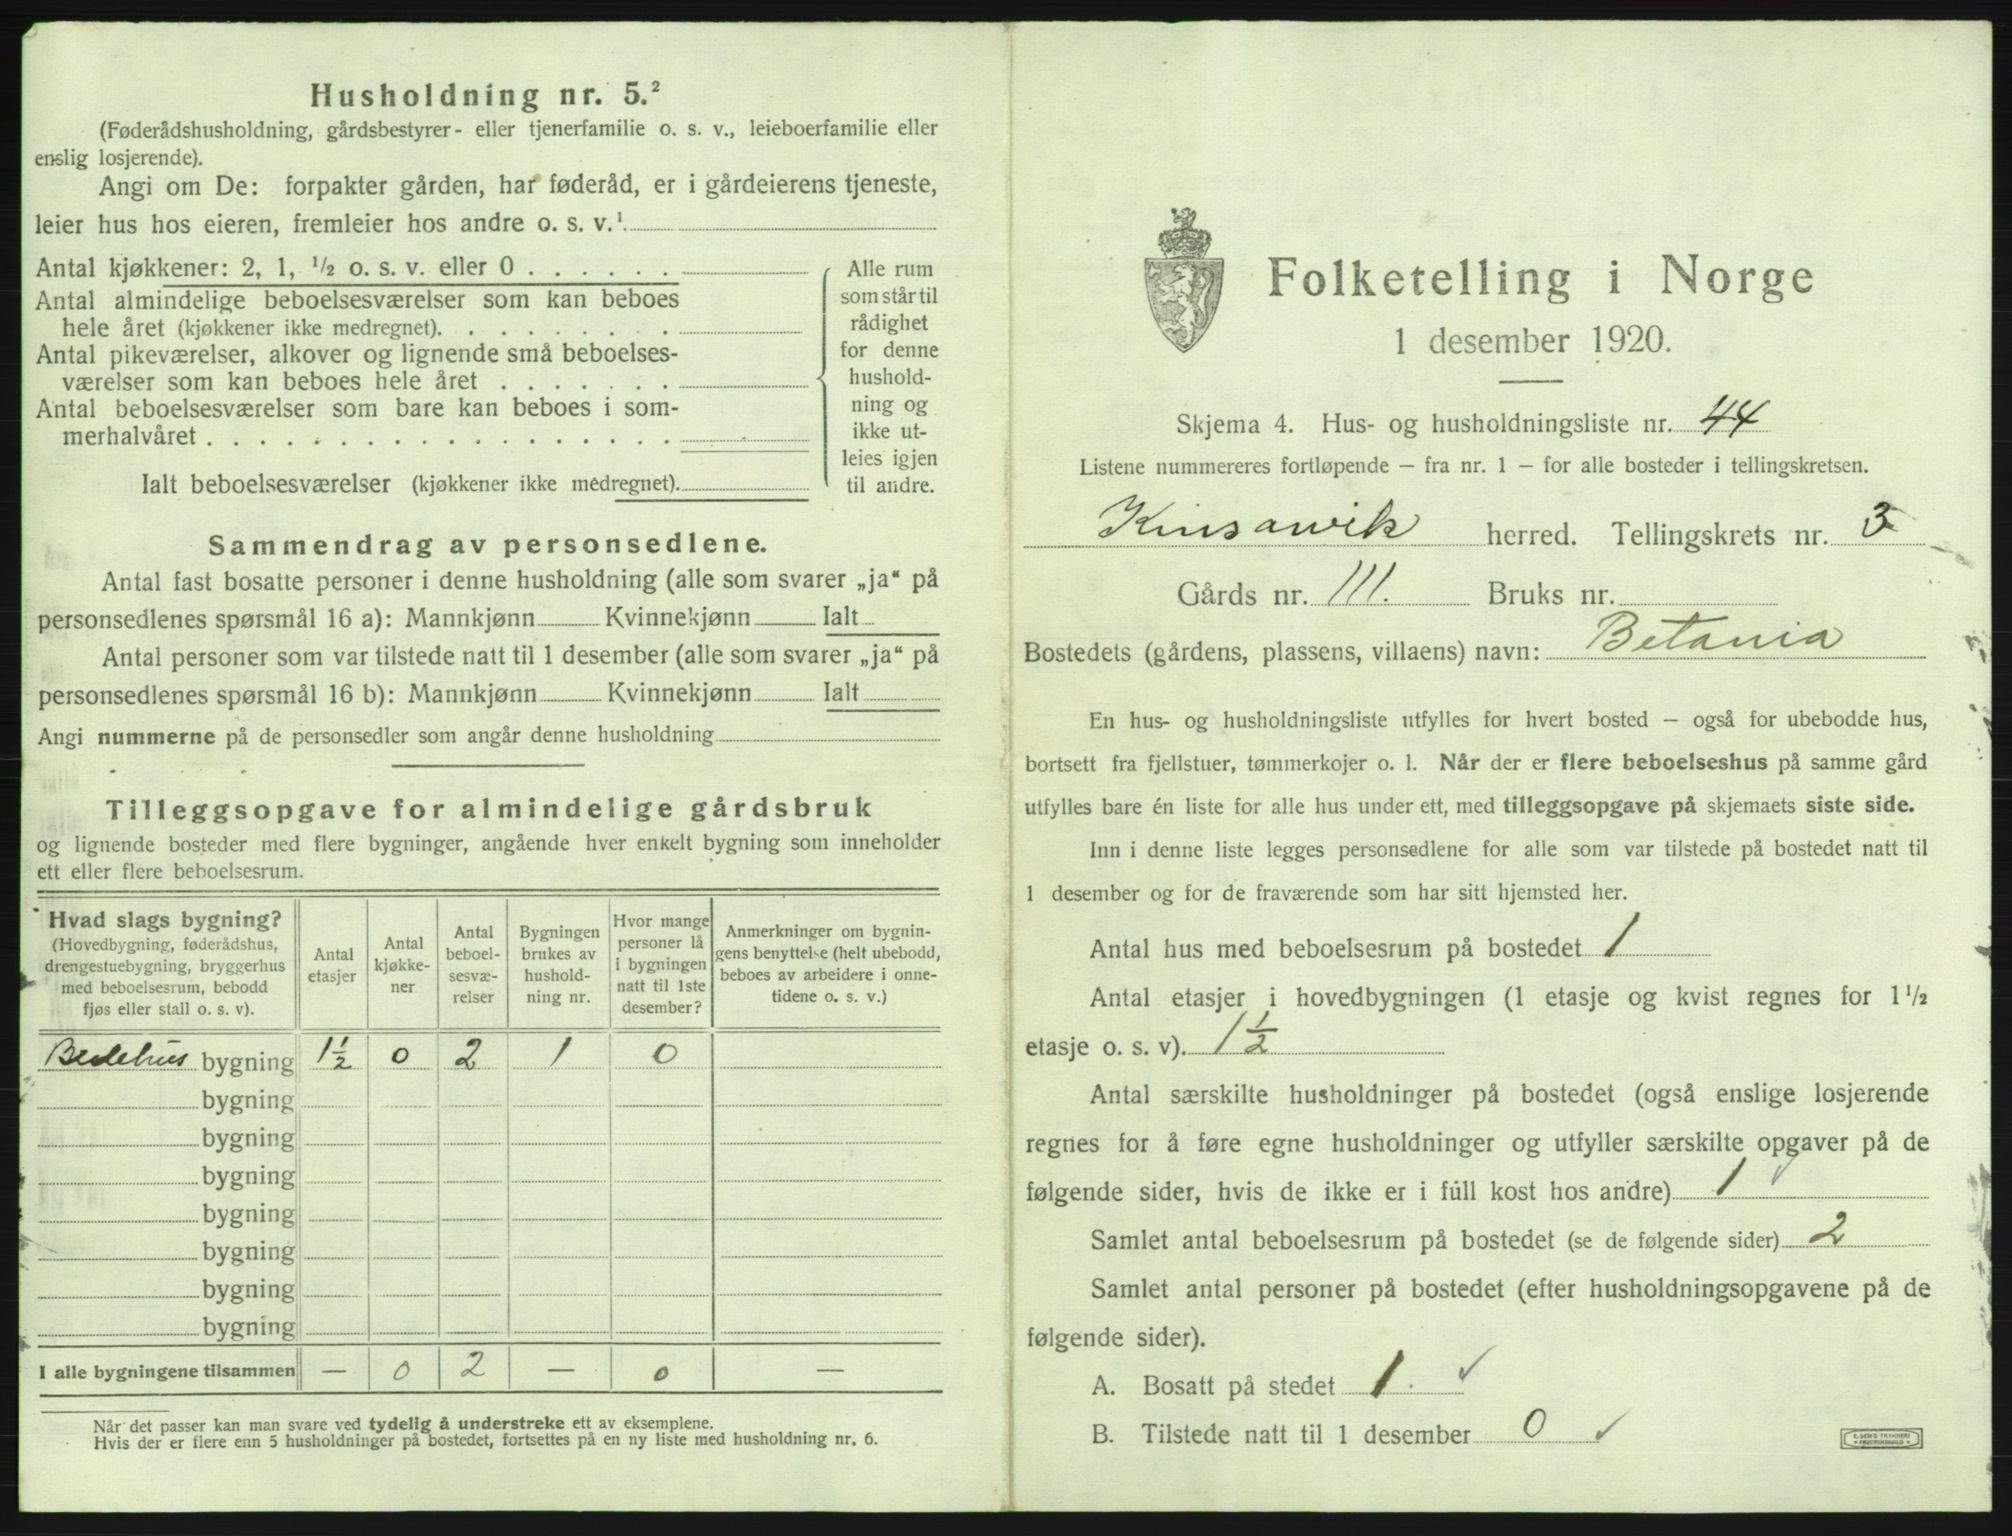 Husholdning nr. 5.²
(Føderådshusholdning, gårdsbestyrer- eller tjenerfamilie o. s. v., leieboerfamilie eller
enslig losjerende).
Angi om De: forpakter gården, har føderåd, er i gårdeierens tjeneste,
leier hus hos eieren, fremleier hos andre o. s. v.¹
Antal kjøkkener: 2, 1, ½ o. s. v. eller 0 . . . . . .
Antal almindelige beboelsesværelser som kan beboes
hele året (kjøkkener ikke medregnet). . . . . . . . .
Antal pikeværelser, alkover og lignende små beboelses-
værelser som kan beboes hele året . . . . . . .
Antal beboelsesværelser som bare kan beboes i som-
merhalvåret . . . . . . . . . . . . . . . . . .
Ialt beboelsesværelser (kjøkkener ikke medregnet).
Alle rum
som står til
rådighet
for denne
hushold-
ning og
ikke ut-
leies igjen
til andre.
Sammendrag av personsedlene.
Antal fast bosatte personer i denne husholdning (alle som svarer „ja“ på
personsedlenes spørsmål 16 a): Mannkjønn Kvinnekjønn Ialt
Antal personer som var tilstede natt til 1 desember (alle som svarer „ja“ på
personsedlenes spørsmål 16 b): Mannkjønn Kvinnekjønn Ialt
Angi nummerne på de personsedler som angår denne husholdning
Tilleggsopgave for almindelige gårdsbruk
og lignende bosteder med flere bygninger, angående hver enkelt bygning som inneholder
ett eller flere beboelsesrum.
Hvad slags bygning?
(Hovedbygning, føderådshus,
drengestuebygning, bryggerhus
med beboelsesrum, bebodd
fjøs eller stall o. s. v).
Antal
etasjer
Antal
kjøkke-
ner
Antal
beboel-
sesvæ-
relser
Bygningen
brukes av
hushold-
ning nr.
Hvor mange
personer lå
i bygningen
natt til 1ste
desember?
Anmerkninger om bygnin-
gens benyttelse (helt ubebodd,
beboes av arbeidere i onne-
tidene o. s. v.)
Bedehus bygning 1½ 0 2 1 0
bygning
bygning
bygning
bygning
bygning
bygning
bygning
I alle bygningene tilsammen — 0 2 — 0 —
Når det passer kan man svare ved tydelig å understreke ett av eksemplene.
Hvis der er flere enn 5 husholdninger på bostedet, fortsettes på en ny liste med husholdning nr. 6.
Folketelling i Norge
1 desember 1920.
Skjema 4. Hus- og husholdningsliste nr. 44
Listene nummereres fortløpende — fra nr. 1 — for alle bosteder i tellingskretsen.
Kinsarvik herred. Tellingskrets nr. 3
Gårds nr. 111. Bruks nr.
Bostedets (gårdens, plassens, villaens) navn: Betania
En hus- og husholdningsliste utfylles for hvert bosted — også for ubebodde hus,
bortsett fra fjellstuer, tømmerkojer o. l. Når der er flere beboelseshus på samme gård
utfylles bare én liste for alle hus under ett, med tilleggsopgave på skjemaets siste side.
Inn i denne liste legges personsedlene for alle som var tilstede på bostedet natt til
1 desember og for de fraværende som har sitt hjemsted her.
Antal hus med beboelsesrum på bostedet 1
Antal etasjer i hovedbygningen (1 etasje og kvist regnes for 1½
etasje o. s. v). 1½
Antal særskilte husholdninger på bostedet (også enslige losjerende
regnes for å føre egne husholdninger og utfyller særskilte opgaver på de
følgende sider, hvis de ikke er i full kost hos andre) 1
Samlet antal beboelsesrum på bostedet (se de følgende sider) 2
Samlet antal personer på bostedet (efter husholdningsopgavene på de
følgende sider).
A. Bosatt på stedet 1. ✓
B. Tilstede natt til 1 desember 0 ✓